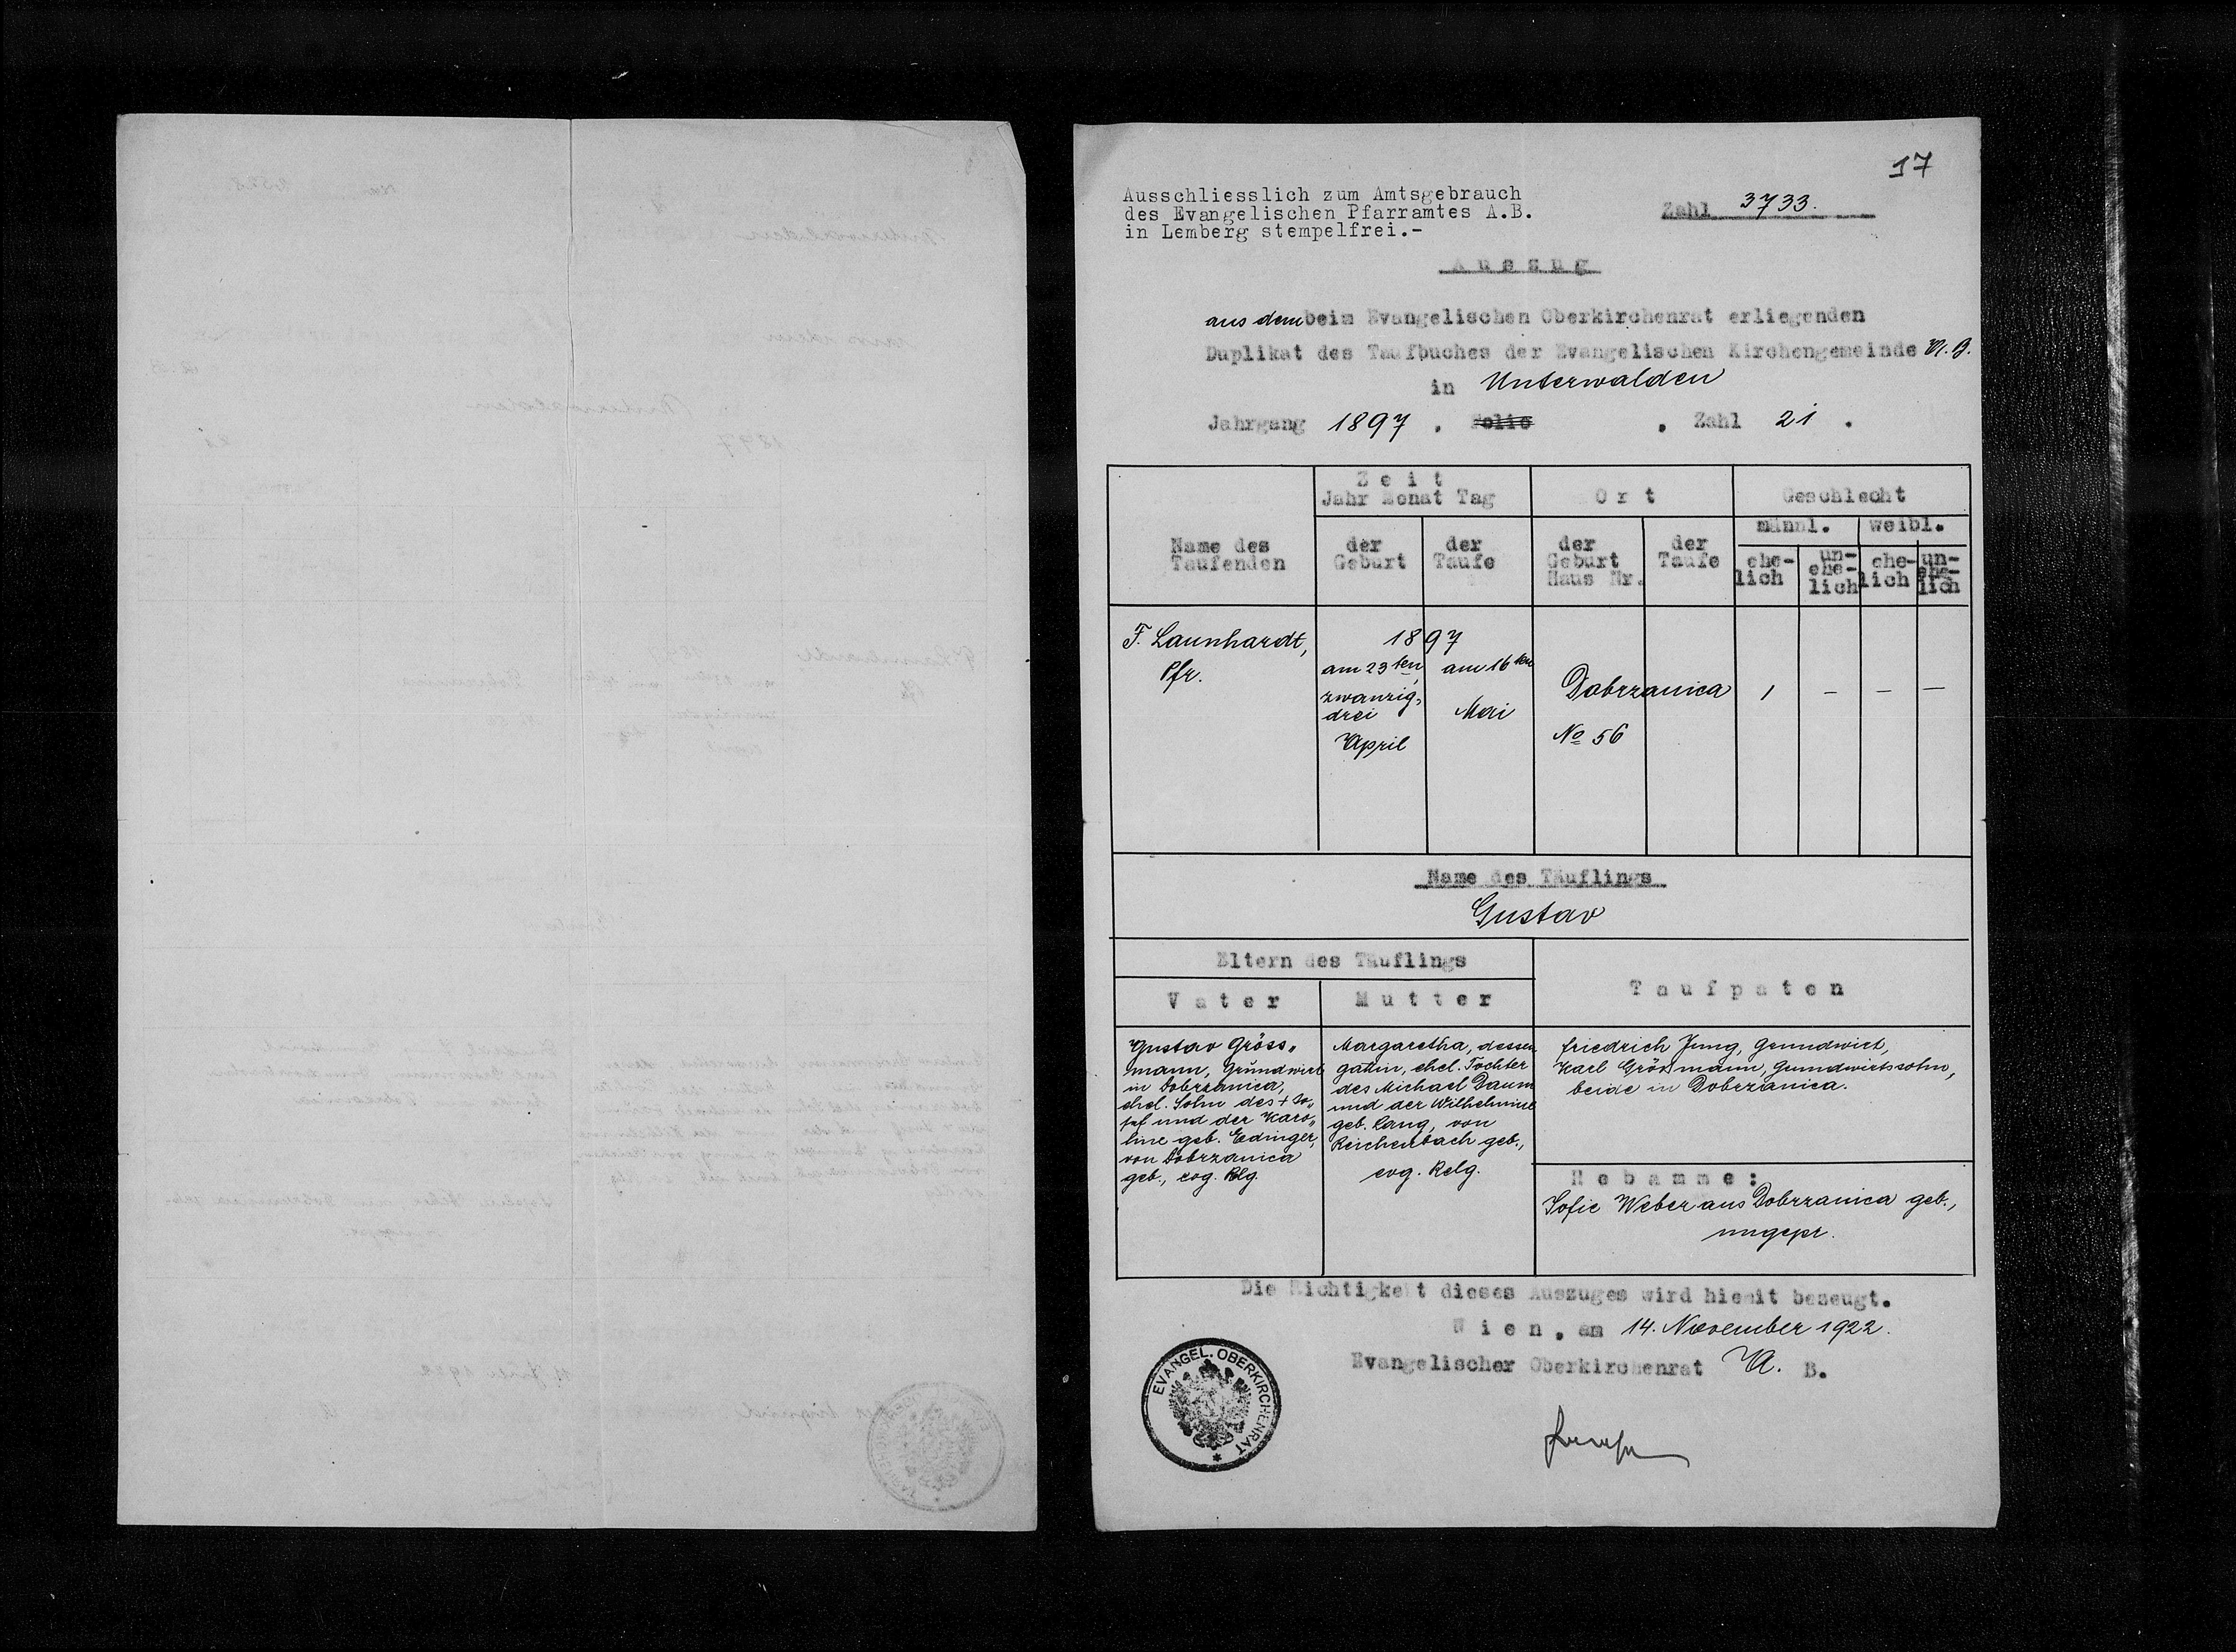 17
Ausschliesslich zum Amtsgebrauch
des Evangelischen Pfarramtes A.B.
in Lemberg stempelfrei.-
Zahl 3733.
Auszug
aus dem beim Evangelischen Oberkirchenrat erliegenden
Duplikat des Taufbuches der Evangelischen Kirchengemeinde A.B.
in Unterwalden
Jahrgang 1897 . Folio . Zahl 21 .
Zeit
Jahr Monat Tag
Ort
Geschlecht
männl.
weibl.
Name des
Taufenden
der
Geburt
der
Taufe
der
Geburt
Haus Nr.
der
Taufe
ehe-
lich
un-
ehe-
lich
ehe-
lich
un-
ehe-
lich
F. Launhardt,
Pfr.
1897
am 23ten
zwanzig-
drei
April
am 16ten
Mai
Dobrzanica
No 56
1
—
—
—
Name des Täuflings
Gustav
Eltern des Täuflings
Vater
Mutter
Taufpaten
Gustav Gröss„
mann, Grundwirt
in Dobrzanica,
ehel. Sohn des + Jo„
sef und der Karo„
line geb. Edinger,
von Dobrzanica
geb., evg. Rlg.
Margaretha, dessen
gattin, ehel. Tochter
des Michael Daum
und der Wilhelmine
geb. Lang, von
Reichenbach geb.,
evg. Relg.
Friedrich Jung, Grundwirt,
Karl Grössmann, Grundwirtssohn,
beide in Dobrzanica.
Hebamme:
Sofie Weber aus Dobrzanica geb.,
ungepr.
Die Richtigkeit dieses Auszuges wird hiemit bezeugt.
Wien, am 14. November 1922.
Evangelischer Oberkirchenrat A. B.
EVANGEL. OBERKIRCHENRAT *